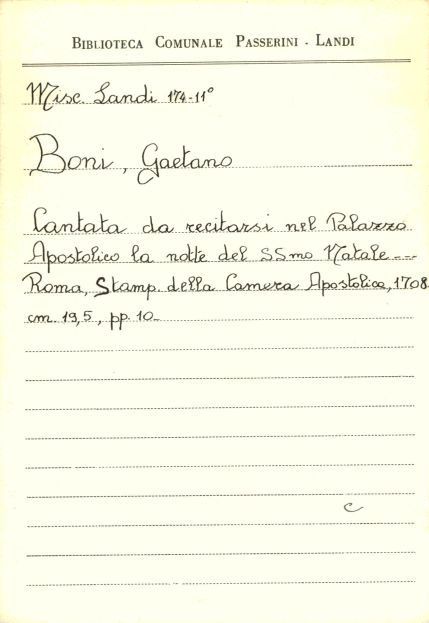 BIBLIOTECA COMUNALE PASSERINI - LANDI
Misc. Landi 174-11°
Boni, Gaetano
Cantata da recitarsi nel Palazzo
Apostolico la notte del SSmo Natale ---
Roma, Stamp. della Camera Apostolica, 1708.
cm. 19,5, pp. 10_
c